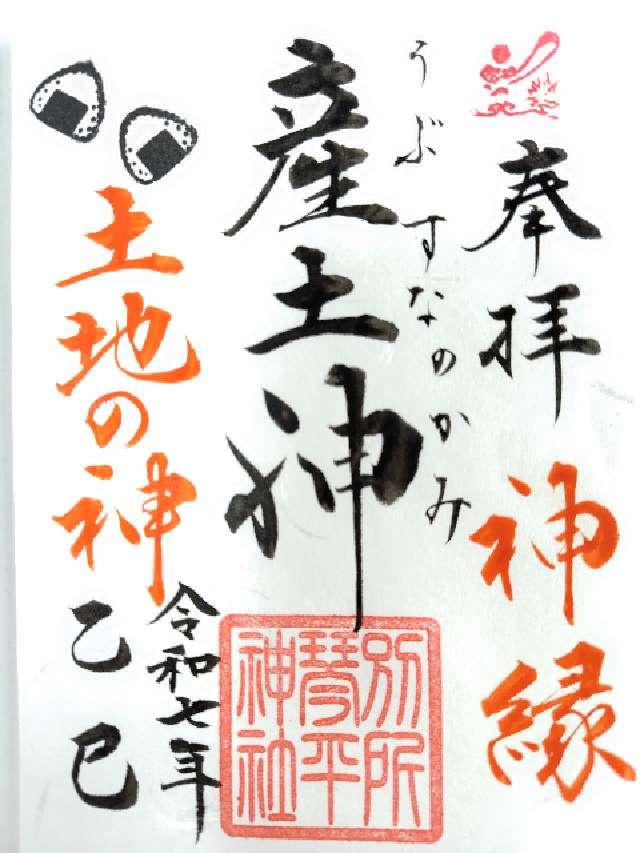 奉拝
神縁
うぶすなのかみ
産土神
別所
琴平
神社
土地の神
令和七年
乙巳